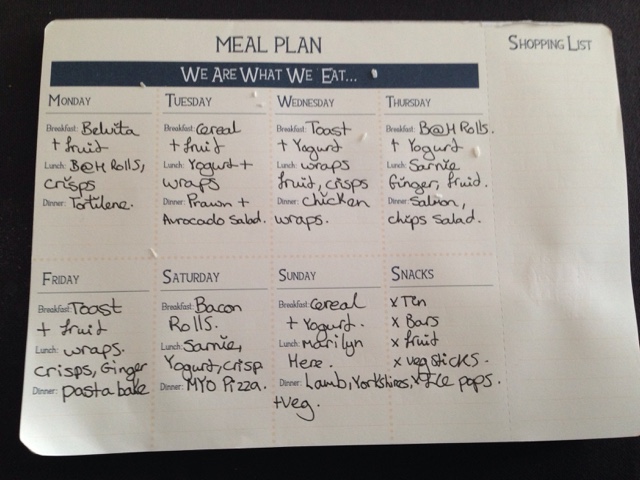 MEAL PLAN
SHOPPING LIST
WE ARE WHAT WE EAT...
MONDAY
Breakfast: Belvita
+ fruit
Lunch: B@H Rolls,
crisps
Dinner: Tortilene.
TUESDAY
Breakfast: Cereal
+ fruit
Lunch: Yogurt +
wraps
Dinner: Prawn +
Avrocado Salad.
WEDNESDAY
Breakfast: Toast
+ Yogurt
Lunch: wraps
fruit, crisps
Dinner: chicken
wraps.
THURSDAY
Breakfast: B@H Rolls.
+ Yogurt
Lunch: Sarnie
Ginger, fruit.
Dinner: Salmon,
chips Salad.
FRIDAY
Breakfast: Toast
+ fruit
Lunch: wraps.
crisps, Ginger
Dinner: pasta bake
SATURDAY
Breakfast: Bacon
Rolls.
Lunch: Sarnie,
Yogurt, crisp
Dinner: MYO Pizza.
SUNDAY
Breakfast: Cereal
+ Yogurt.
Lunch: Marilyn
Here.
Dinner: Lamb, Yorkshires,
+veg.
SNACKS
x Tin
x Bars
x fruit
x veg sticks.
x Ice pops.